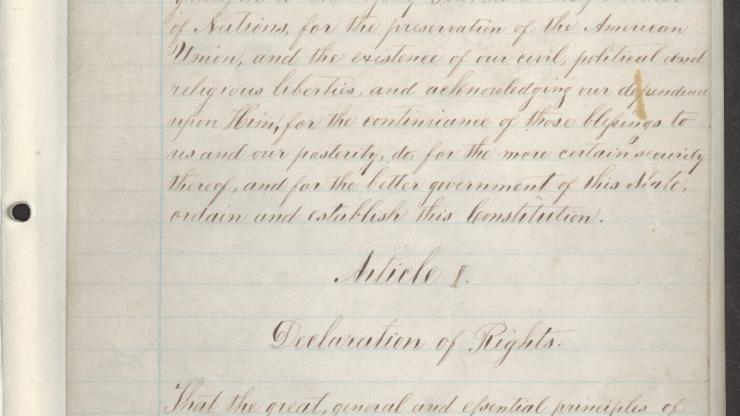 of Nations, for the preservation of the American
Union, and the existence of our civil, political and
religious liberties, and acknowledging our dependence
upon Him, for the continuance of those blessings to
us and our posterity, do, for the more certain security
thereof, and for the better government of this State,
ordain and establish this Constitution.
Article I.
Declaration of Rights.
That the great, general and essential principles of